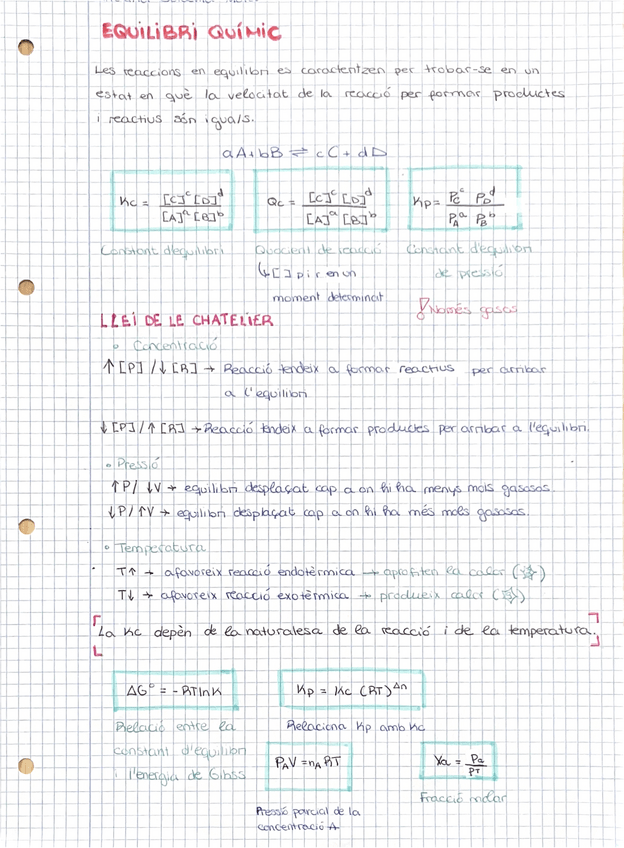 EQUILIBRI QUÍMIC
Les reaccions en equilibri es caracteritzen per trobar-se en un
estat en què la velocitat de la reacció per formar productes
i reactius són iguals.
aA + bB ⇌ cC + dD
Kc = [C]^c [D]^d / [A]^a [B]^b
Qc = [C]^c [D]^d / [A]^a [B]^b
Kp = P_C^c P_D^d / P_A^a P_B^b
Constant d'equilibri
Quocient de reacció
↳ [ ] p i r en un
moment determinat
Constant d'equilibri
de pressió
! Només gasos
LLEI DE LE CHATELIER
• Concentració
↑[P] / ↓[R] → Reacció tendeix a formar reactius per arribar
a l'equilibri
↓[P] / ↑[R] → Reacció tendeix a formar productes per arribar a l'equilibri.
• Pressió
↑P / ↓V → equilibri desplaçat cap a on hi ha menys mols gasosos.
↓P / ↑V → equilibri desplaçat cap a on hi ha més mols gasosos.
• Temperatura
T↑ → afavoreix reacció endotèrmica → aprofiten la calor
T↓ → afavoreix reacció exotèrmica → produeix calor
La Kc depèn de la naturalesa de la reacció i de la temperatura.
ΔG° = -RTlnK
Kp = Kc (RT)^Δn
Relació entre la
constant d'equilibri
i l'energia de Gibss
Relaciona Kp amb Kc
P_A V = n_A RT
Xa = Pa / PT
Pressió parcial de la
concentració A
Fracció molar